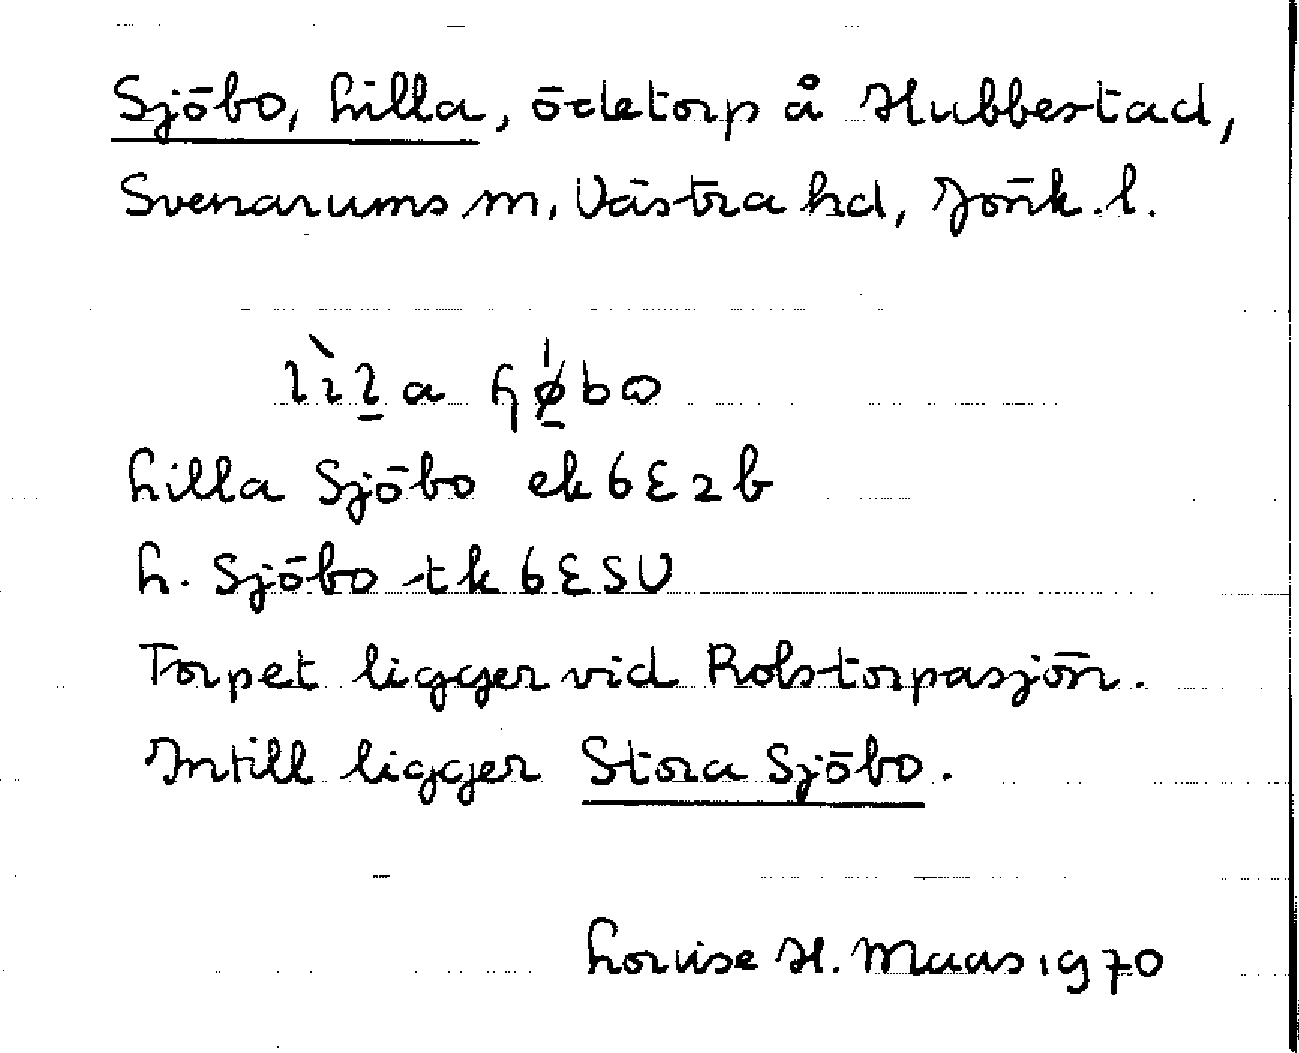 Sjöbo, Lilla, ödetorp å Hubbestad,
Svenarums sn, Västra hd, Jönk. l.
Lilla Sjöbo ek 6E2b
L. Sjöbo tk 6ESV
Torpet ligger vid Rolstorpasjön.
Intill ligger Stora Sjöbo.
Lovise H. Maas 1970